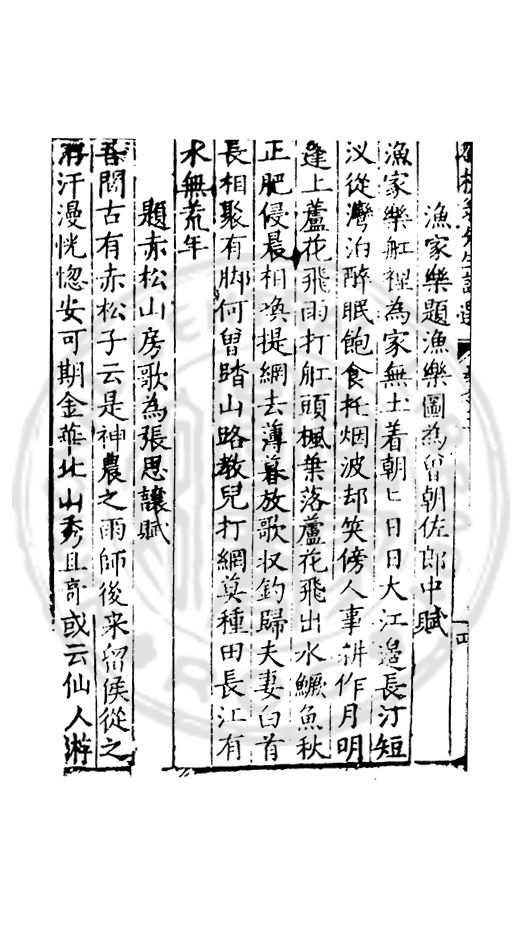 漁家樂題漁樂圖為曾朝佐郎中賦
漁家樂舡裡為家無土着朝〻日日大江邊長汀短
汊從灣泊醉眠飽食托烟波却笑傍人事耕作月明
蓬上蘆花飛雨打舡頭楓葉落蘆花飛出水鱖魚秋
正肥侵晨相喚提網去薄暮放歌収釣歸夫妻白首
長相聚有脚何曾踏山路教兒打網莫種田長江有
水無荒年
題赤松山房歌為張思讓賦
吾聞古有赤松子云是神農之雨師後来留侯從之
游汗漫恍惚安可期金華北山秀且奇或云仙人游